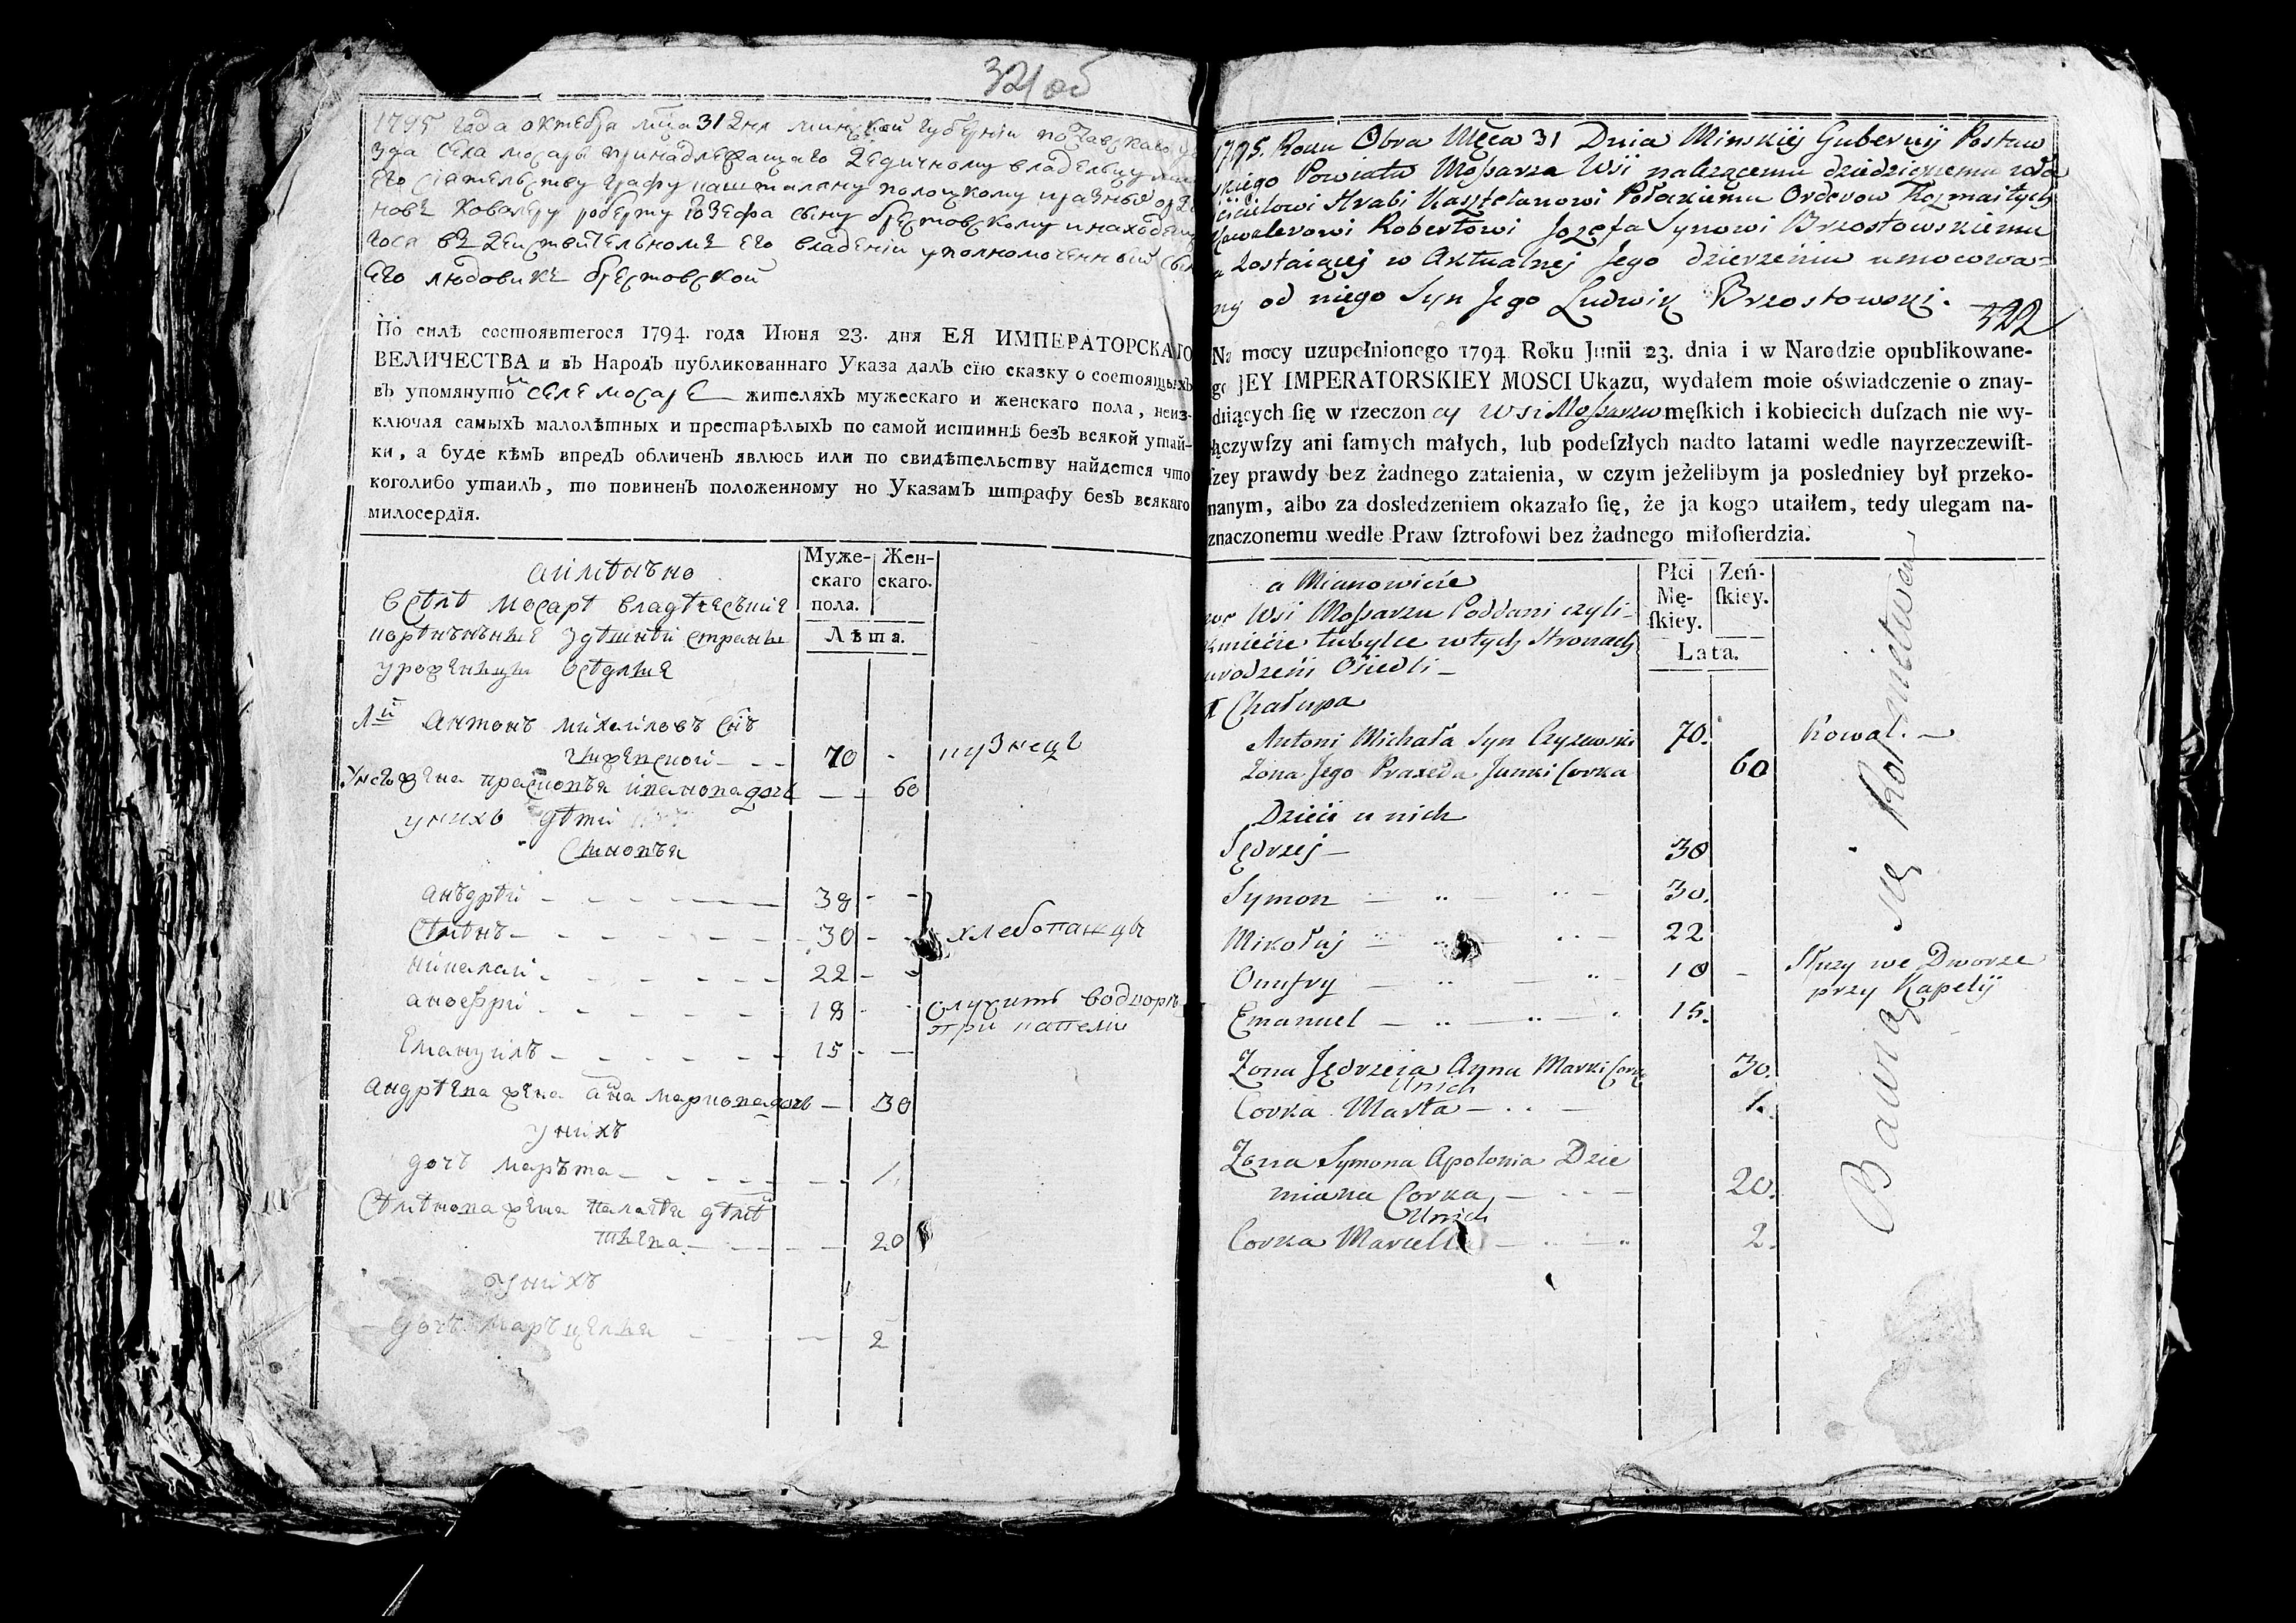 321 об
1795 года октебра мца 31 дня минской губерніи поставскаго
зда села мосаря принадлежащаго дедичному владельцу
его сіятельству графу каштеляну полоцкому празных
новъ ковалеру роберту юзефа сыну брестовскому и находящ
гося въ действительномъ его владеніи уполномоченный
его людовикъ брестовской
По силѣ состоявшегося 1794. года Июня 23. дня ЕЯ ИМПЕРАТОРСКАГО
ВЕЛИЧЕСТВА и въ Народъ публикованнаго Указа далъ сїю сказку о состоящыхъ
въ упомянуто м селе мосаре жителяхъ мужескаго и женскаго пола, неиз-
ключая самыхъ малолѣтныхъ и престарѣлыхъ по самой истиннѣ безъ всякой утай-
ки, а буде кѣмъ впредъ обличенъ явлюсь или по свидѣтельству найдется что
коголибо утаилъ, то повиненъ положенному по Указамъ штрафу безъ всякаго
милосердїя.
Муже- Жен-
скаго скаго.
пола.
Лѣта.
аимѣнъно
всѣлѣ мосарѣ
здѣшнѣй страны
уроженыцы осѣдлыя
1й антонъ михаиловъ сынъ
чижевской 70 кузнецъ
у него жена прасковъя дочь 60
у нихъ дѣти
сыновъя
анъдрѣй 38
Сѣмѣнъ 30 хлебопашцы
николай 22
анофрӣй 18 служитъ водворѣ
при капеліи
Емануилъ 15
андрѣева жена анна маркова дочь 30
у нихъ
дочь маръта 1
Сѣмѣнова жена палагѣя
20
у нихъ
дочь маръцеля 2
1795. Roku Obra Męca 31 Dnia Minskiej Gubernij Postaw
skiego Powiatu Mossarza Wsi należącemu dziedzicznemu
Hrabi Kasztelanowi Połockiemu Orderow Rozmaitych
Kawalerowi Robertowi Jozefa Synowi Brzostowskiemu
a zostaiącej w Aktualnej Jego dzierżeniu umocowa=
ny od niego Syn Jego Ludwik Brzostowski.
322
Na mocy uzupełnionego 1794 Roku Junii 23. dnia i w Narodzie opublikowane-
go JEY IMPERATORSKIEY MOSCI Ukazu, wydałem moie oświadczenie o znay-
duiących ſię w rzeczon ey Wsi Mossarzu męſkich i kobiecich duſzach nie wy-
łączywſzy ani ſamych małych, lub podeſzłych nadto latami wedle nayrzeczewiſt-
ſzey prawdy bez żadnego zataienia, w czym jeżelibym ja posledniey był przeko-
nanym, albo za dosledzeniem okazało ſię, że ja kogo utaiłem, tedy ulegam na-
znaczonemu wedle Praw ſztrofowi bez żadnego miłoſierdzia.
Płci Zeń-
Mę- ſkiey.
ſkiey.
Lata.
a Mianowicie
we Wsi Mossarzu Poddani czyli
kmiecie tubylce w tych Stronach
urodzeni Osiedli
1 Chałupa
Antoni Michała Syn Czyżewski 70. Kowal.
Żona Jego Praxeda Janki Corka 60
Dzieci u nich
Jędrzej 38
Symon 30.
Mikołaj 22
Onufry 18 Służy we Dworze
przy Kapelij
Emanuel 15.
Żona Jędrzeia Anna Marki Corka 30.
Unich
Corka Marta 1.
Żona Symona Apolonia Dzie
miana Corka 20.
Unich
Corka Marcella 2.
Bawią się Rolnictwem